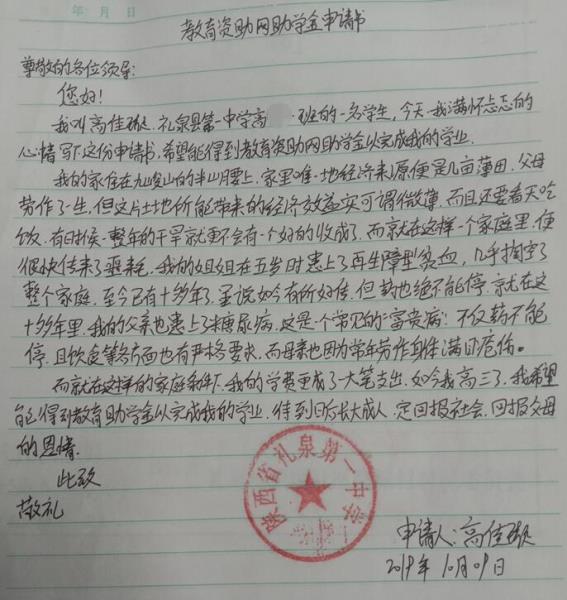 年 月 日
教育资助网助学金申请书
尊敬的各位领导:
您好!
我叫高佳璇,礼泉县第一中学高 班的一名学生,今天,我满怀忐忑的
心情写下这份申请书,希望能得到教育资助网助学金以完成我的学业.
我的家住在九嵕山的半山腰上,家里唯一地经济来源便是几亩薄田,父母
劳作了一生,但这片土地所能带来的经济效益实可谓微薄,而且还要看天吃
饭,有时候一整年的干旱就更不会有一个好的收成了.而就在这样一个家庭里,便
很快传来了噩耗,我的姐姐在五岁时患上了再生障型贫血,几乎掏空了
整个家庭,至今已有十多年了.虽说如今有所好传,但药也绝不能停.就在这
十多年里,我的父亲也患上了糖尿病,这是个常见的“富贵病”.不仅药不能
停,且饮食等各方面也有严格要求,而母亲也因为常年劳作身体满目疮伤。
而就在这样的家庭条件下,我的学费更成了大笔支出,如今我高三了,我希望
能得到教育助学金以完成我的学业,待到日后长大成人,定回报社会,回报父母
的恩情.
此致
敬礼
陕西省礼泉第一中学
申请人:高佳璇
2019年10月09日